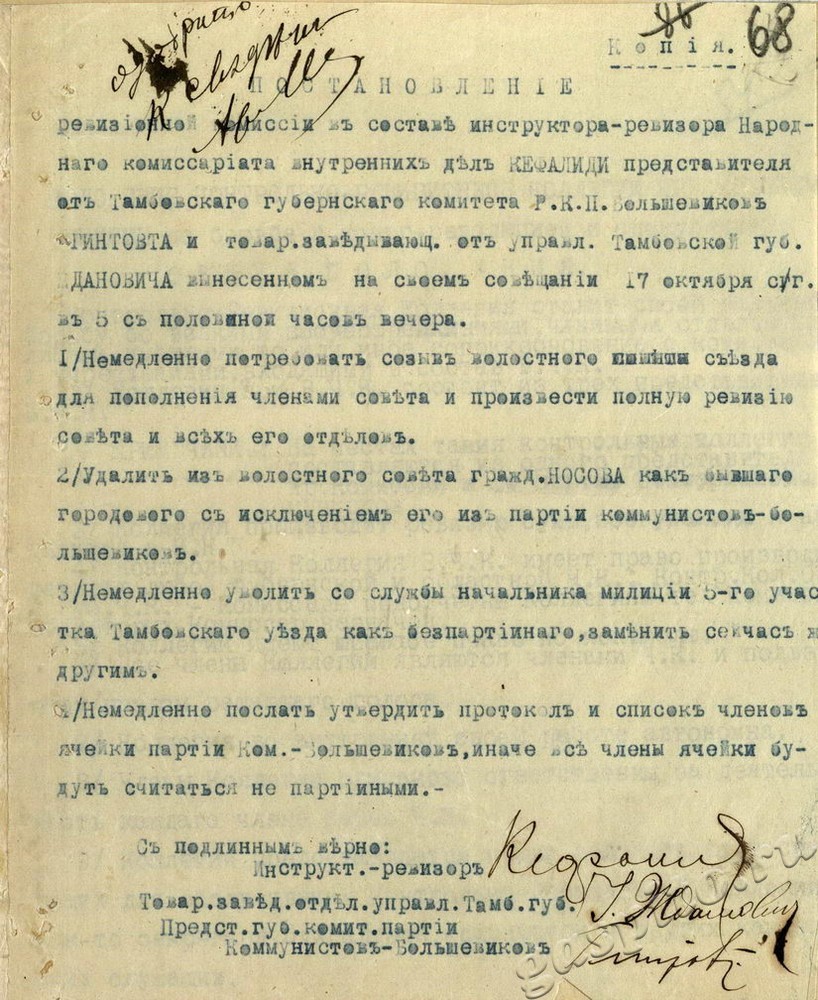 68
Копія.
ПОСТАНОВЛЕНІЕ
ревизіонной комиссіи въ составѣ инструктора-ревизора Народ-
наго комиссаріата внутреннихъ дѣлъ КЕФАЛИДИ представителя
отъ Тамбовскаго губернскаго комитета Р.К.П.Большевиковъ
ГИНТОВТА и товар.завѣдывающ. отъ управл. Тамбовской губ.
ЖДАНОВИЧА вынесенномъ на своемъ совѣщаніи 17 октября с/г.
въ 5 съ половиной часовъ вечера.
1/Немедленно потребовать созывъ волостного съѣзда
для пополненія членами совѣта и произвести полную ревизію
совѣта и всѣхъ его отдѣловъ.
2/Удалить изъ волостного совѣта гражд.НОСОВА какъ бывшаго
городового съ исключеніемъ его изъ партіи коммунистовъ-бо-
льшевиковъ.
3/Немедленно уволить со службы начальника милиціи 5-го учас
тка Тамбовскаго уѣзда какъ безпартіинаго,замѣнить сейчасъ ж
другимъ.
4/Немедленно послать утвердить протоколъ и списокъ членовъ
ячейки партіи Ком.-Большевиковъ,иначе всѣ члены ячейки бу-
дуть считаться не партіиными.-
Съ подлиннымъ вѣрно:
Инструкт.-ревизоръ
Товар.завѣд.отдѣл.управл.Тамб.губ. Г. Жданович
Предст.губ.комит.партіи
Коммунистовъ-Большевиковъ